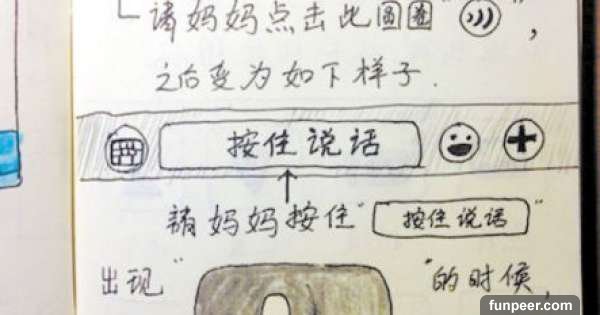 请妈妈点击此圆圈“”,
之后变为如下样子.
按住说话
请妈妈按住“按住说话”
出现“”的时候,
funpeer.com